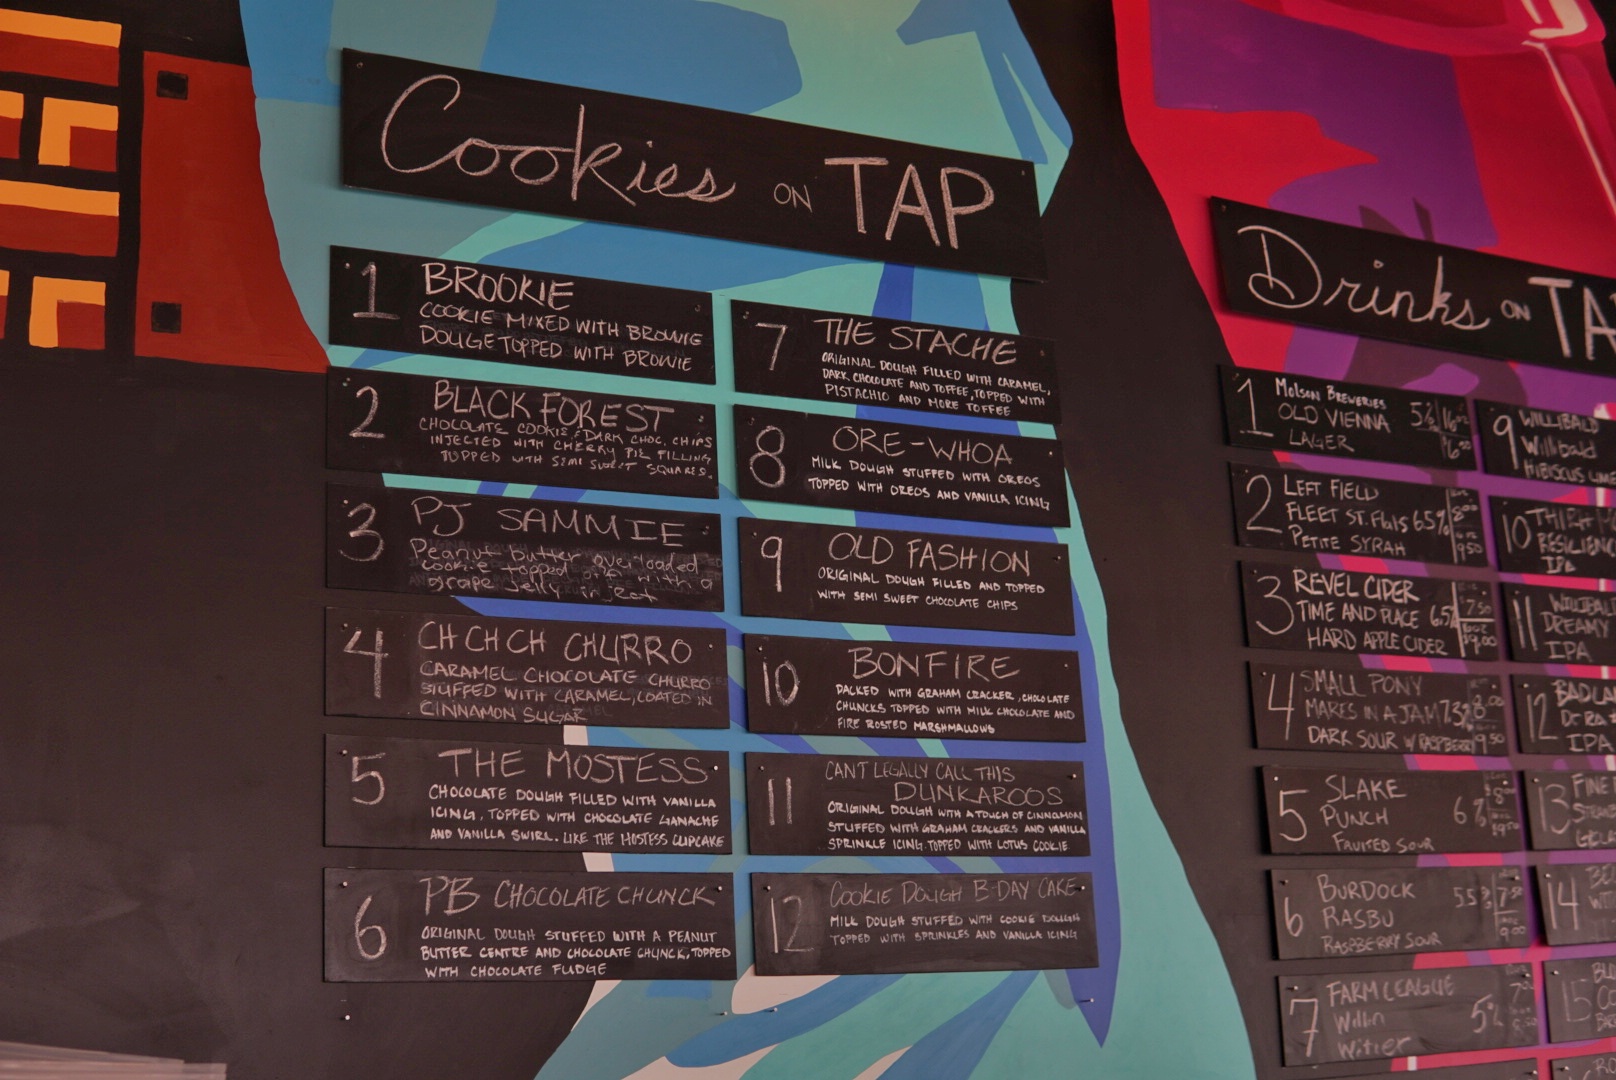 Cookies ON TAP
1 BROOKIE
COOKIE MIXED WITH BROWNIE
DOUGE TOPPED WITH BROWIE
2 BLACK FOREST
CHOCOLATE COOKIE, DARK CHOC. CHIPS
INJECTED WITH CHERRY PIE FILLING
TOPPED WITH SEMI SWEET SQUARES.
3 PJ SAMMIE
Peanut butter overloaded
cookie topped off with a
grape jelly
4 CH CH CH CHURRO
CARAMEL CHOCOLATE CHURRO
STUFFED WITH CARAMEL, COATED IN
CINNAMON SUGAR
5 THE MOSTESS
CHOCOLATE DOUGH FILLED WITH VANILLA
ICING, TOPPED WITH CHOCOLATE GANACHE
AND VANILLA SWIRL. LIKE THE HOSTESS CUPCAKE
6 PB CHOCOLATE CHUNCK
ORIGINAL DOUGH STUFFED WITH A PEANUT
BUTTER CENTRE AND CHOCOLATE CHUNCK, TOPPED
WITH CHOCOLATE FUDGE
7 THE STACHE
ORIGINAL DOUGH FILLED WITH CARAMEL,
DARK CHOCOLATE AND TOFFEE, TOPPED WITH
PISTACHIO AND MORE TOFFEE
8 ORE-WHOA
MILK DOUGH STUFFED WITH OREOS
TOPPED WITH OREOS AND VANILLA ICING
9 OLD FASHION
ORIGINAL DOUGH FILLED AND TOPPED
WITH SEMI SWEET CHOCOLATE CHIPS
10 BONFIRE
PACKED WITH GRAHAM CRACKER, CHOCOLATE
CHUNCKS TOPPED WITH MILK CHOCOLATE AND
FIRE ROSTED MARSHMALLOWS
11 CAN'T LEGALLY CALL THIS
DUNKAROOS
ORIGINAL DOUGH WITH A TOUCH OF CINNAMON
STUFFED WITH GRAHAM CRACKERS AND VANILLA
SPRINKLE ICING. TOPPED WITH LOTUS COOKIE
12 COOKIE DOUGH B-DAY CAKE
MILK DOUGH STUFFED WITH COOKIE DOUGH
TOPPED WITH SPRINKLES AND VANILLA ICING
Drinks ON TA
1 Molson Breweries
OLD VIENNA 5%
LAGER
2 LEFT FIELD
FLEET ST. 6.5%
PETITE SYRAH 9.50
3 REVEL CIDER
TIME AND PLACE 6.5% 7.50
HARD APPLE CIDER $9.00
4 SMALL PONY
MAKES IN A JAM 7.5% 8.00
DARK SOUR W/ RASPBERRY 9.50
5 SLAKE
PUNCH 6%
FRUITED SOUR
6 BURDOCK
RASBU 5.5%
RASPBERRY SOUR 9.00
7 FARM LEAGUE
5%
Witier
9 WILLIBALD
Willibald
HIBISCUS LIME
10
RESILIENC
IPA
11 WILLIBAL
DREAMY
IPA
12 BADLA
IPA
13 FINE
14
15